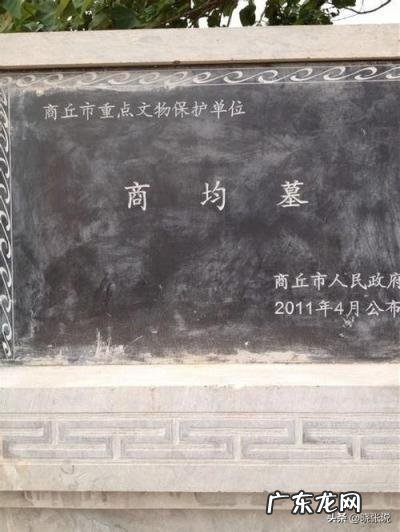 商丘市重点文物保护单位
商均墓
商丘市人民政府
2011年4月公布
广东龙网
头条@晓张说